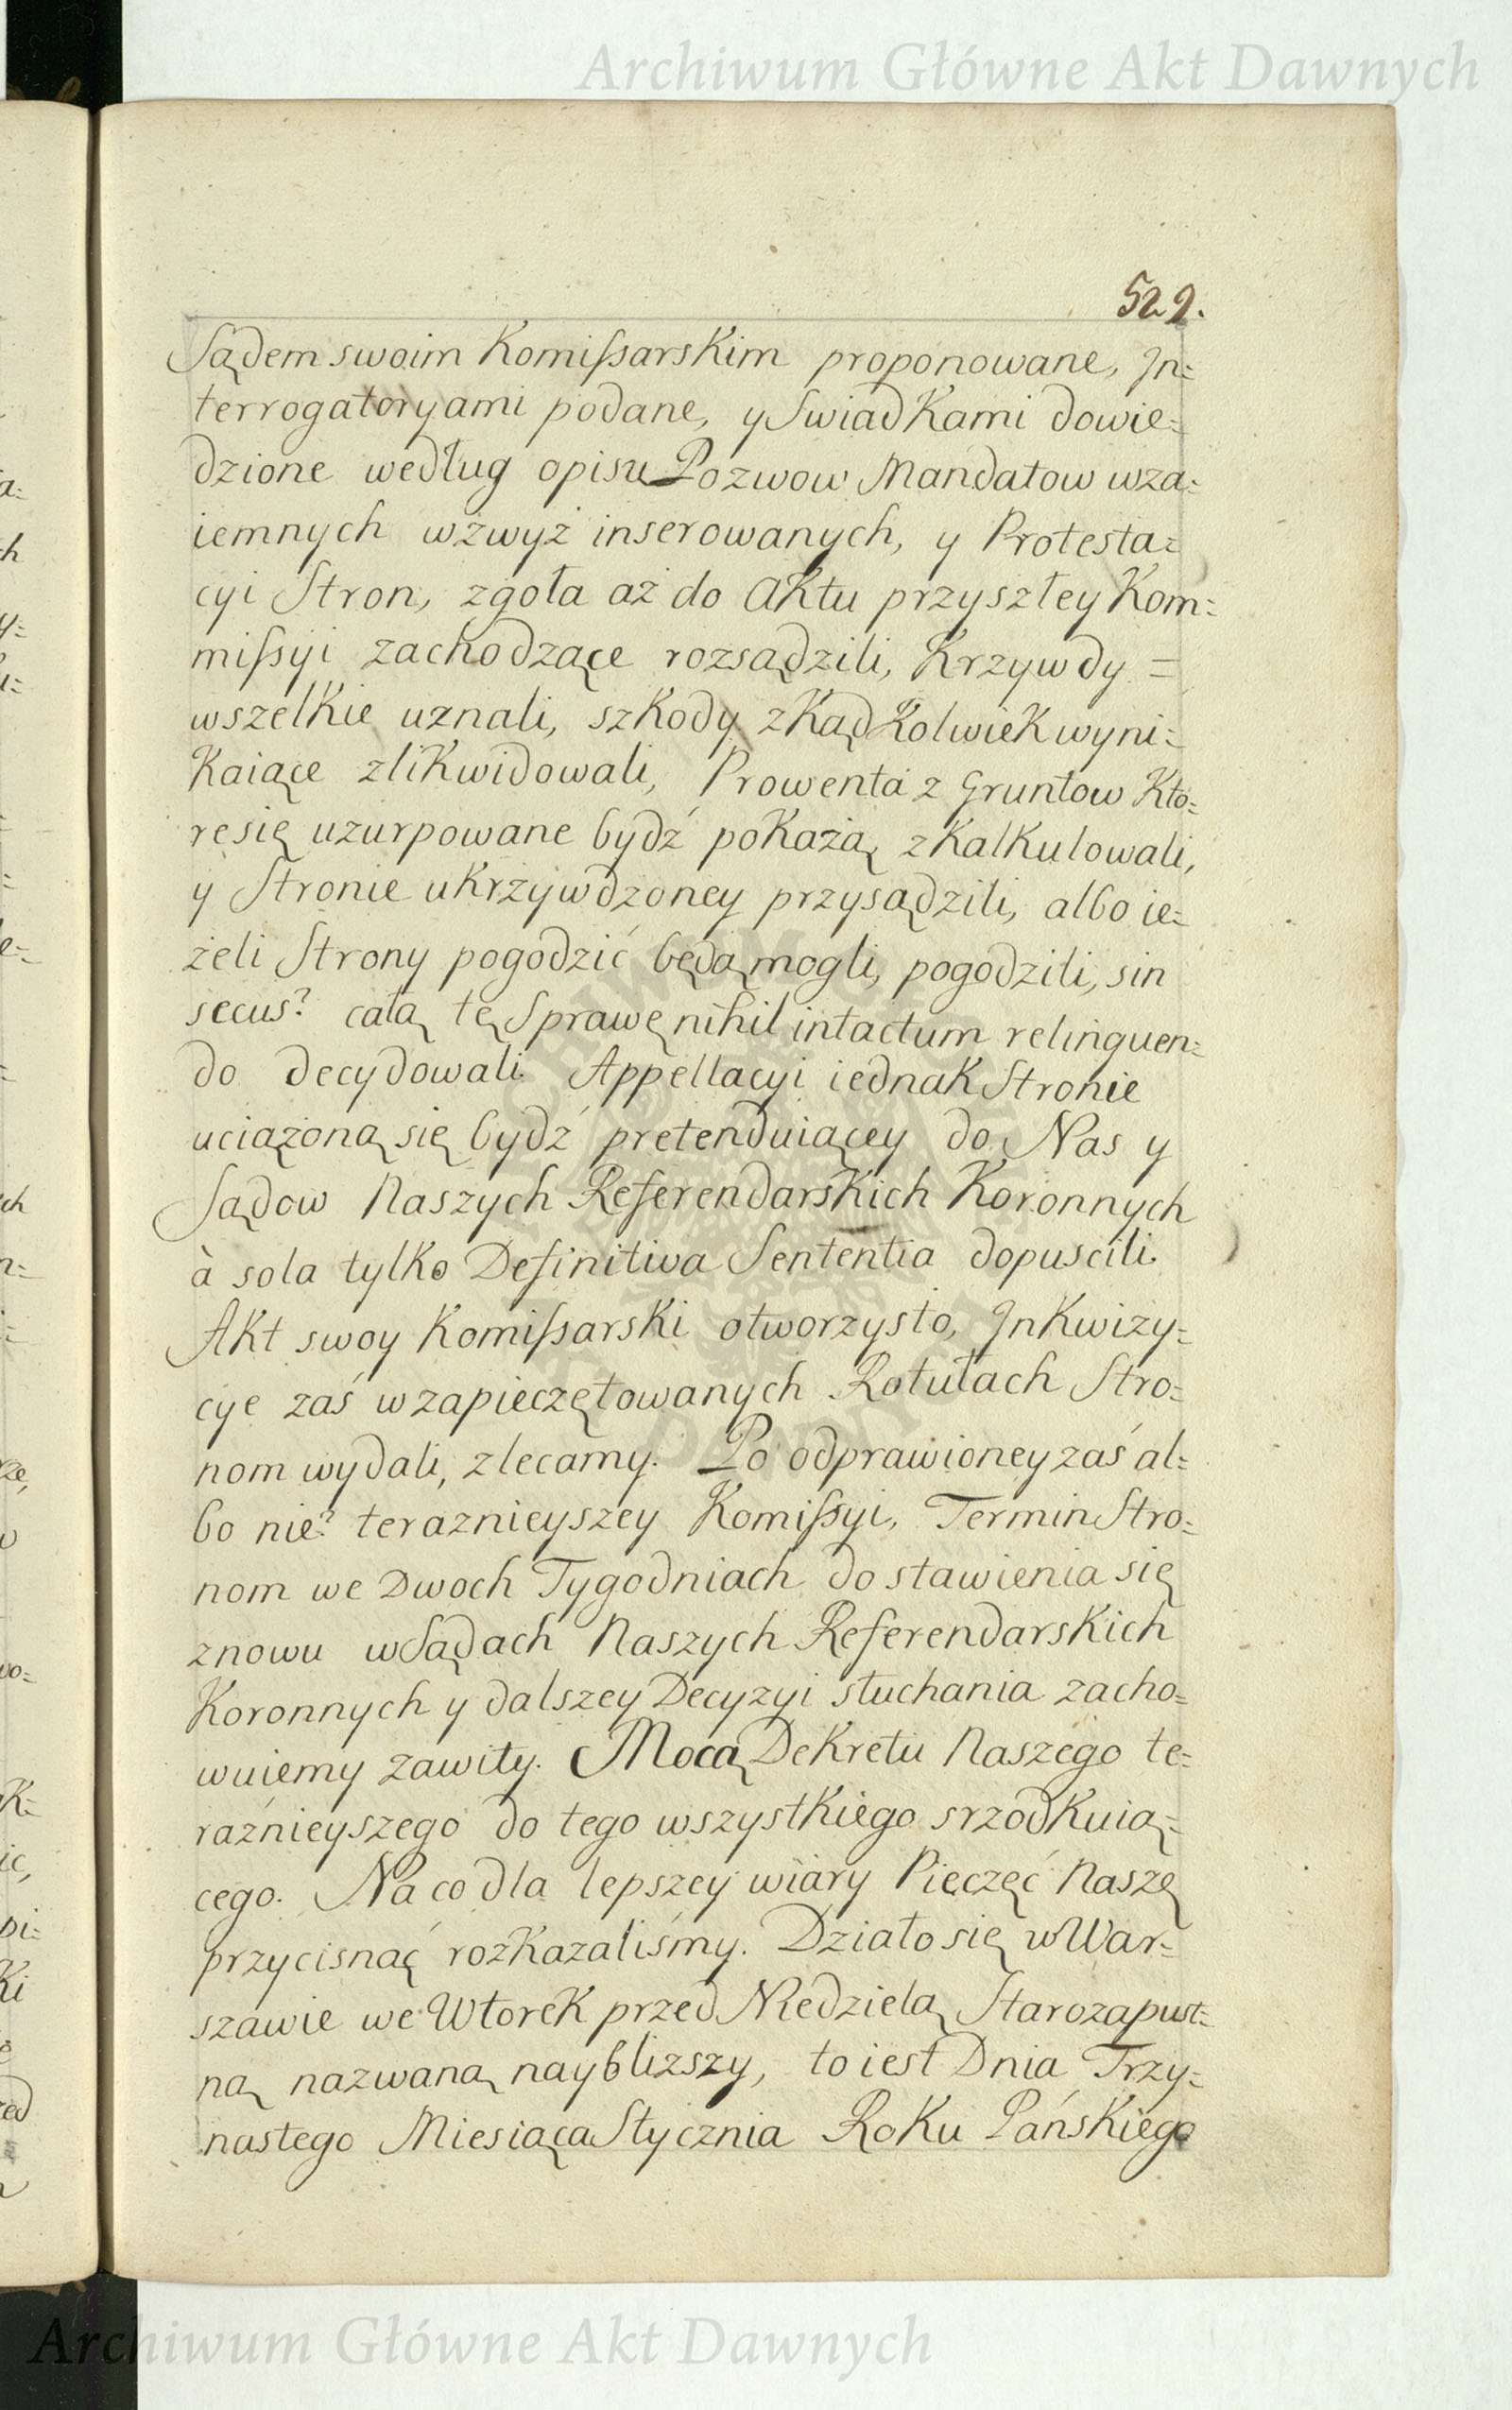 Archiwum Główne Akt Dawnych
529.
Sądem swoim Komißarskim proponowane, Jn=
terrogatoryami podane, y Swiadkami dowie=
dzione według opisu Pozwow Mandatow wza=
iemnych wzwyż inserowanych, y Protesta=
cyi Stron, zgoła aż do Aktu przyszłey Kom=
mißyi zachodzące rozsądzili, Krzywdy =
wszelkie uznali, szkody zkąd kolwiek wyni=
kaiące zlikwidowali, Prowenta z Gruntow kto=
re się uzurpowane bydź pokażą, zkalkulowali,
y Stronie ukrzywdzoney przysądzili, albo ie=
żeli Strony pogodzić będą mogli, pogodzili, sin
secus? całą tę Sprawę nihil intactum relinquen=
do decydowali. Appellacyi iednak Stronie
uciążoną się bydź pretenduiącey do Nas y
Sądow Naszych Referendarskich Koronnych
à sola tylko Definitiva Sententia dopuscili.
Akt swoy Komißarski otworzysto, Jnkwizy=
cye zaś w zapieczętowanych Rotułach Stro=
nom wydali, zlecamy. Po odprawioney zaś al=
bo nie? teraznieyszey Komißyi, Termin Stro=
nom we Dwoch Tygodniach do stawienia się
znowu w Sądach Naszych Referendarskich
Koronnych y dalszey Decyzyi słuchania zacho=
wuiemy zawity. Mocą Dekretu Naszego te=
raźnieyszego do tego wszystkiego srzodkuią=
cego. Na co dla lepszey wiary Pieczęć Naszę
przycisnąć rozkazaliśmy. Działo się w War=
szawie we Wtorek przed Niedzielą Starozapust=
ną nazwaną naybliższy, to iest Dnia Trzy=
nastego Miesiąca Stycznia Roku Pańskiego
Archiwum Główne Akt Dawnych